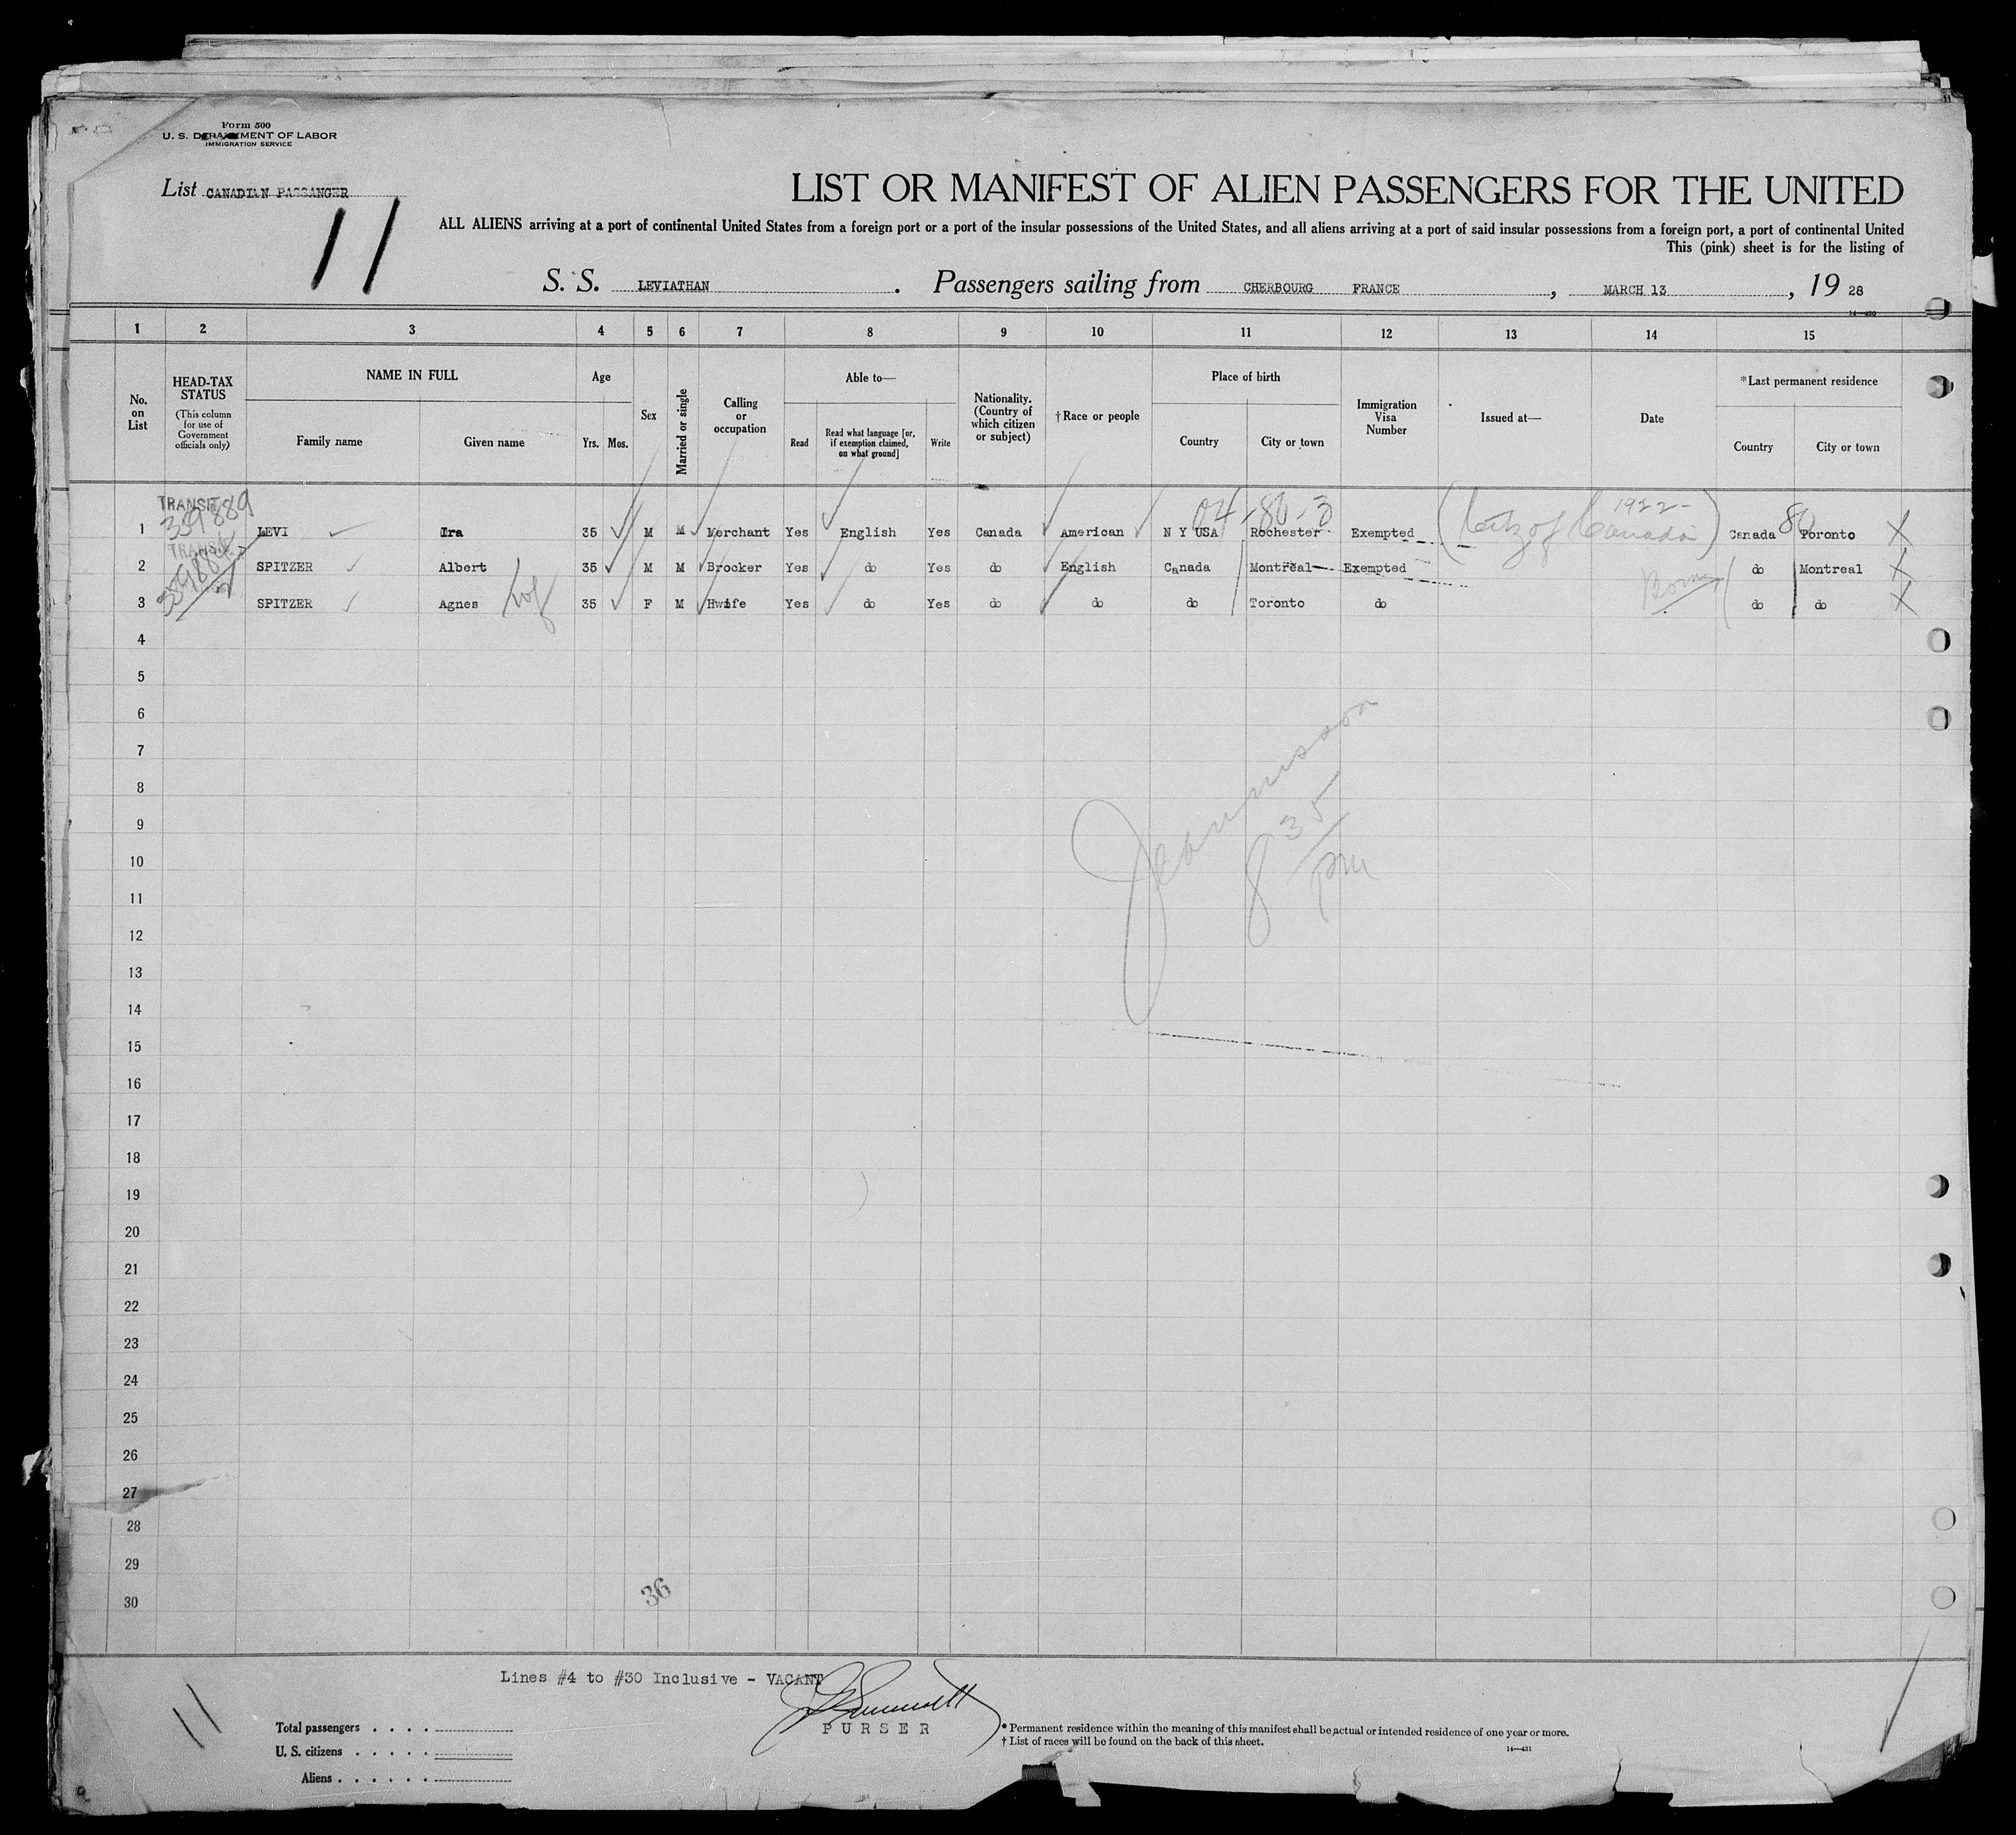 Form 500
U. S. DEPARTMENT OF LABOR
IMMIGRATION SERVICE
List CANADIAN PASSANGER
11
LIST OR MANIFEST OF ALIEN PASSENGERS FOR THE UNITED
ALL ALIENS arriving at a port of continental United States from a foreign port or a port of the insular possessions of the United States, and all aliens arriving at a port of said insular possessions from a foreign port, a port of continental United
This (pink) sheet is for the listing of
S. S. LEVIATHAN. Passengers sailing from CHERBOURG FRANCE, MARCH 13, 19 28
14—430
1 2 3 4 5 6 7 8 9 10 11 12 13 14 15
No. on List
HEAD-TAX STATUS (This column for use of Government officials only)
NAME IN FULL
Family name Given name
Age
Yrs. Mos.
Sex
Married or single
Calling or occupation
Able to—
Read
Read what language [or, if exemption claimed, on what ground]
Write
Nationality. (Country of which citizen or subject)
†Race or people
Place of birth
Country City or town
Immigration Visa Number
Issued at—
Date
*Last permanent residence
Country City or town
TRANSIT
359889
04-80-3
1922-
80
1 LEVI Ira 35 M M Merchant Yes English Yes Canada American N Y USA Rochester Exempted (Citz of Canada) Canada Toronto X
TRANSIT
2 SPITZER Albert 35 M M Brocker Yes do Yes do English Canada Montreal Exempted do Montreal X
3 SPITZER Agnes wf 35 F M Hwife Yes do Yes do do do Toronto do Born do do X
4
5
6
7
8
9
10
11
12
13
14
15
16
17
18
19
20
21
22
23
24
25
26
27
28
29
30
8 35 pm
36
Lines #4 to #30 Inclusive - VACANT
PURSER
11
Total passengers . . . .
U. S. citizens . . . . .
Aliens . . . . . .
* Permanent residence within the meaning of this manifest shall be actual or intended residence of one year or more.
† List of races will be found on the back of this sheet.
14—431